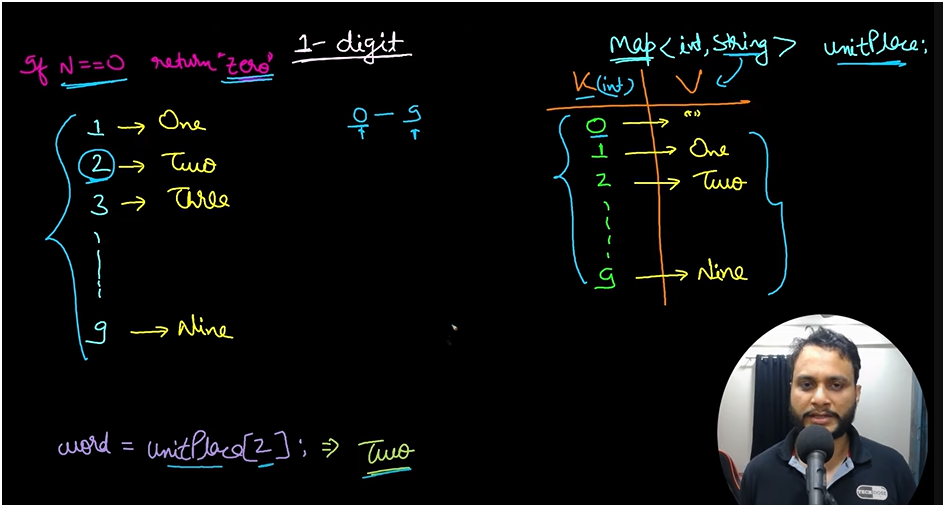 1- digit
If N==0 return "Zero"
1 → One
2 → Two
3 → Three
9 → Nine
0 - 9
Map<int, String> unitPlace;
K(int) V
0 → ""
1 → One
2 → Two
9 → Nine
word = unitPlace[2]; ⇒ Two